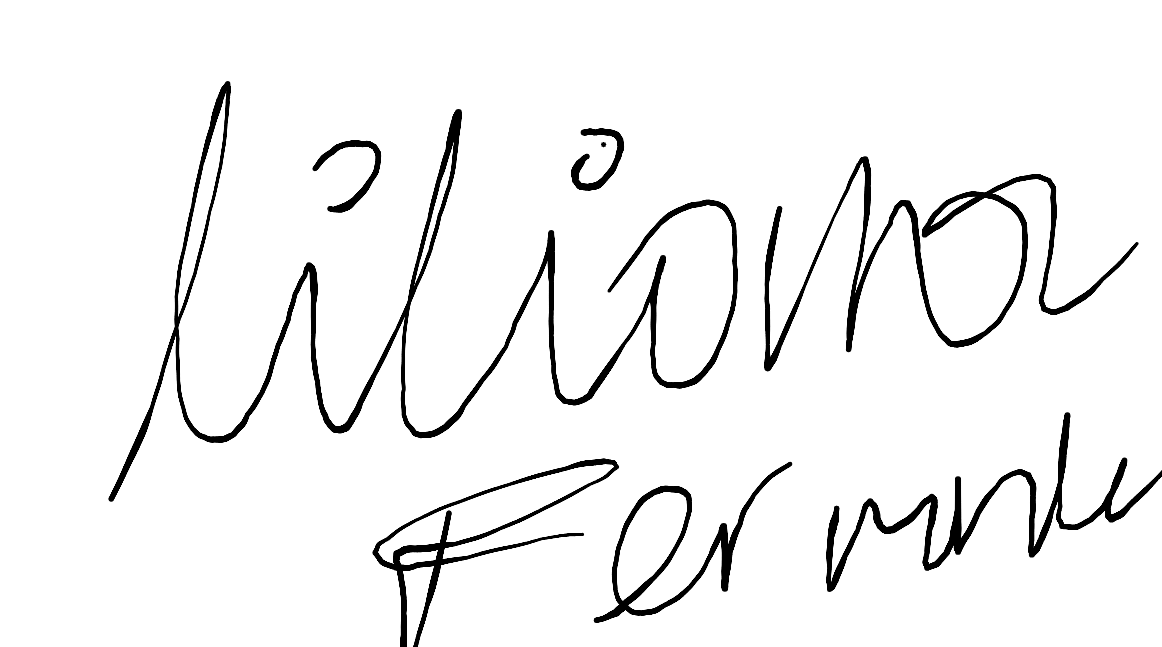 liliana
Fernande